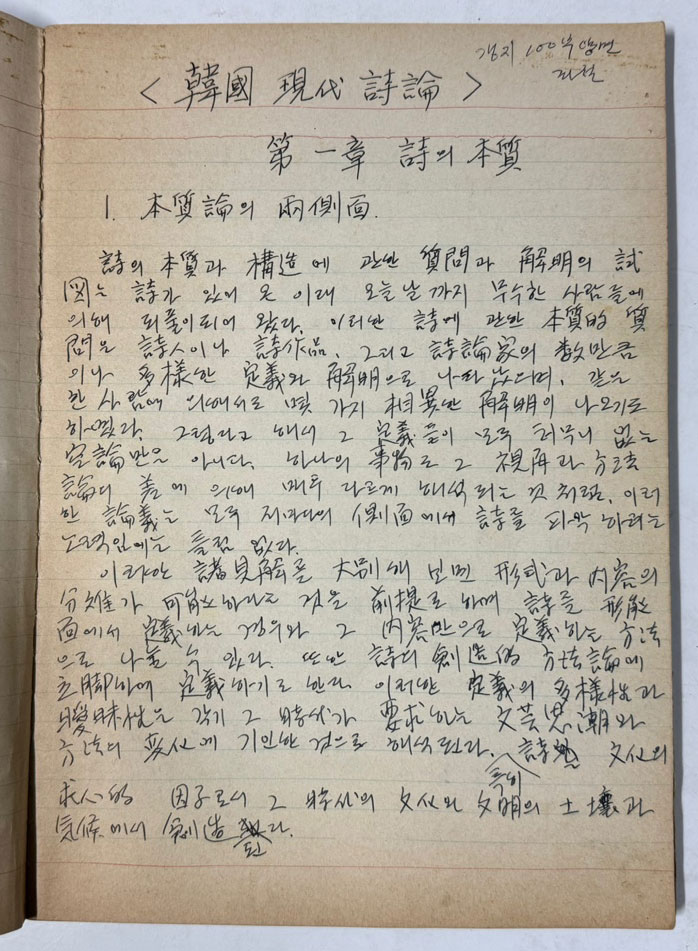 갱지 100부
< 韓國 現代 詩論 >
第一章 詩의 本質
1. 本質論의 兩側面.
詩의 本質과 構造에 관한 質問과 解明의 試
図는 詩가 있어 온 이래 오늘날까지 무수한 사람들에
의해 되풀이되어 왔다. 이러한 詩에 관한 本質的 質
問은 詩人이나 詩作品, 그리고 詩論家의 数만큼
이나 多樣한 定義와 解明으로 나타났으며, 같은
한 사람에 의해서도 몇 가지 相異한 解明이 나오기도
하였다. 그렇다고 해서 그 定義들이 모두 터무니 없는
空論만은 아니다. 하나의 事物도 그 視角과 方法
論의 차에 의해 매우 다르게 해석되는 것처럼, 이러
한 論義는 모두 저마다의 側面에서 詩를 파악하려는
노력임에는 틀림 없다.
이러한 諸見解를 大別해 보면 形式과 内容의
分離가 可能하다는 것을 前提로 하여 詩를 形態
面에서 定義하는 경우와 그 内容만으로 定義하는 方法
으로 나눌 수 있다. 또한 詩의 創造的 方法論에
立脚하여 定義하기도 한다. 이러한 定義의 多樣性과
曖昧性은 각기 그 時代가 要求하는 文芸思潮와
方法의 変化에 기인한 것으로 해석된다. 詩는 文化의
특히
求心的 因子로서 그 時代의 文化와 文明의 土壤과
気候에서 創造된다.